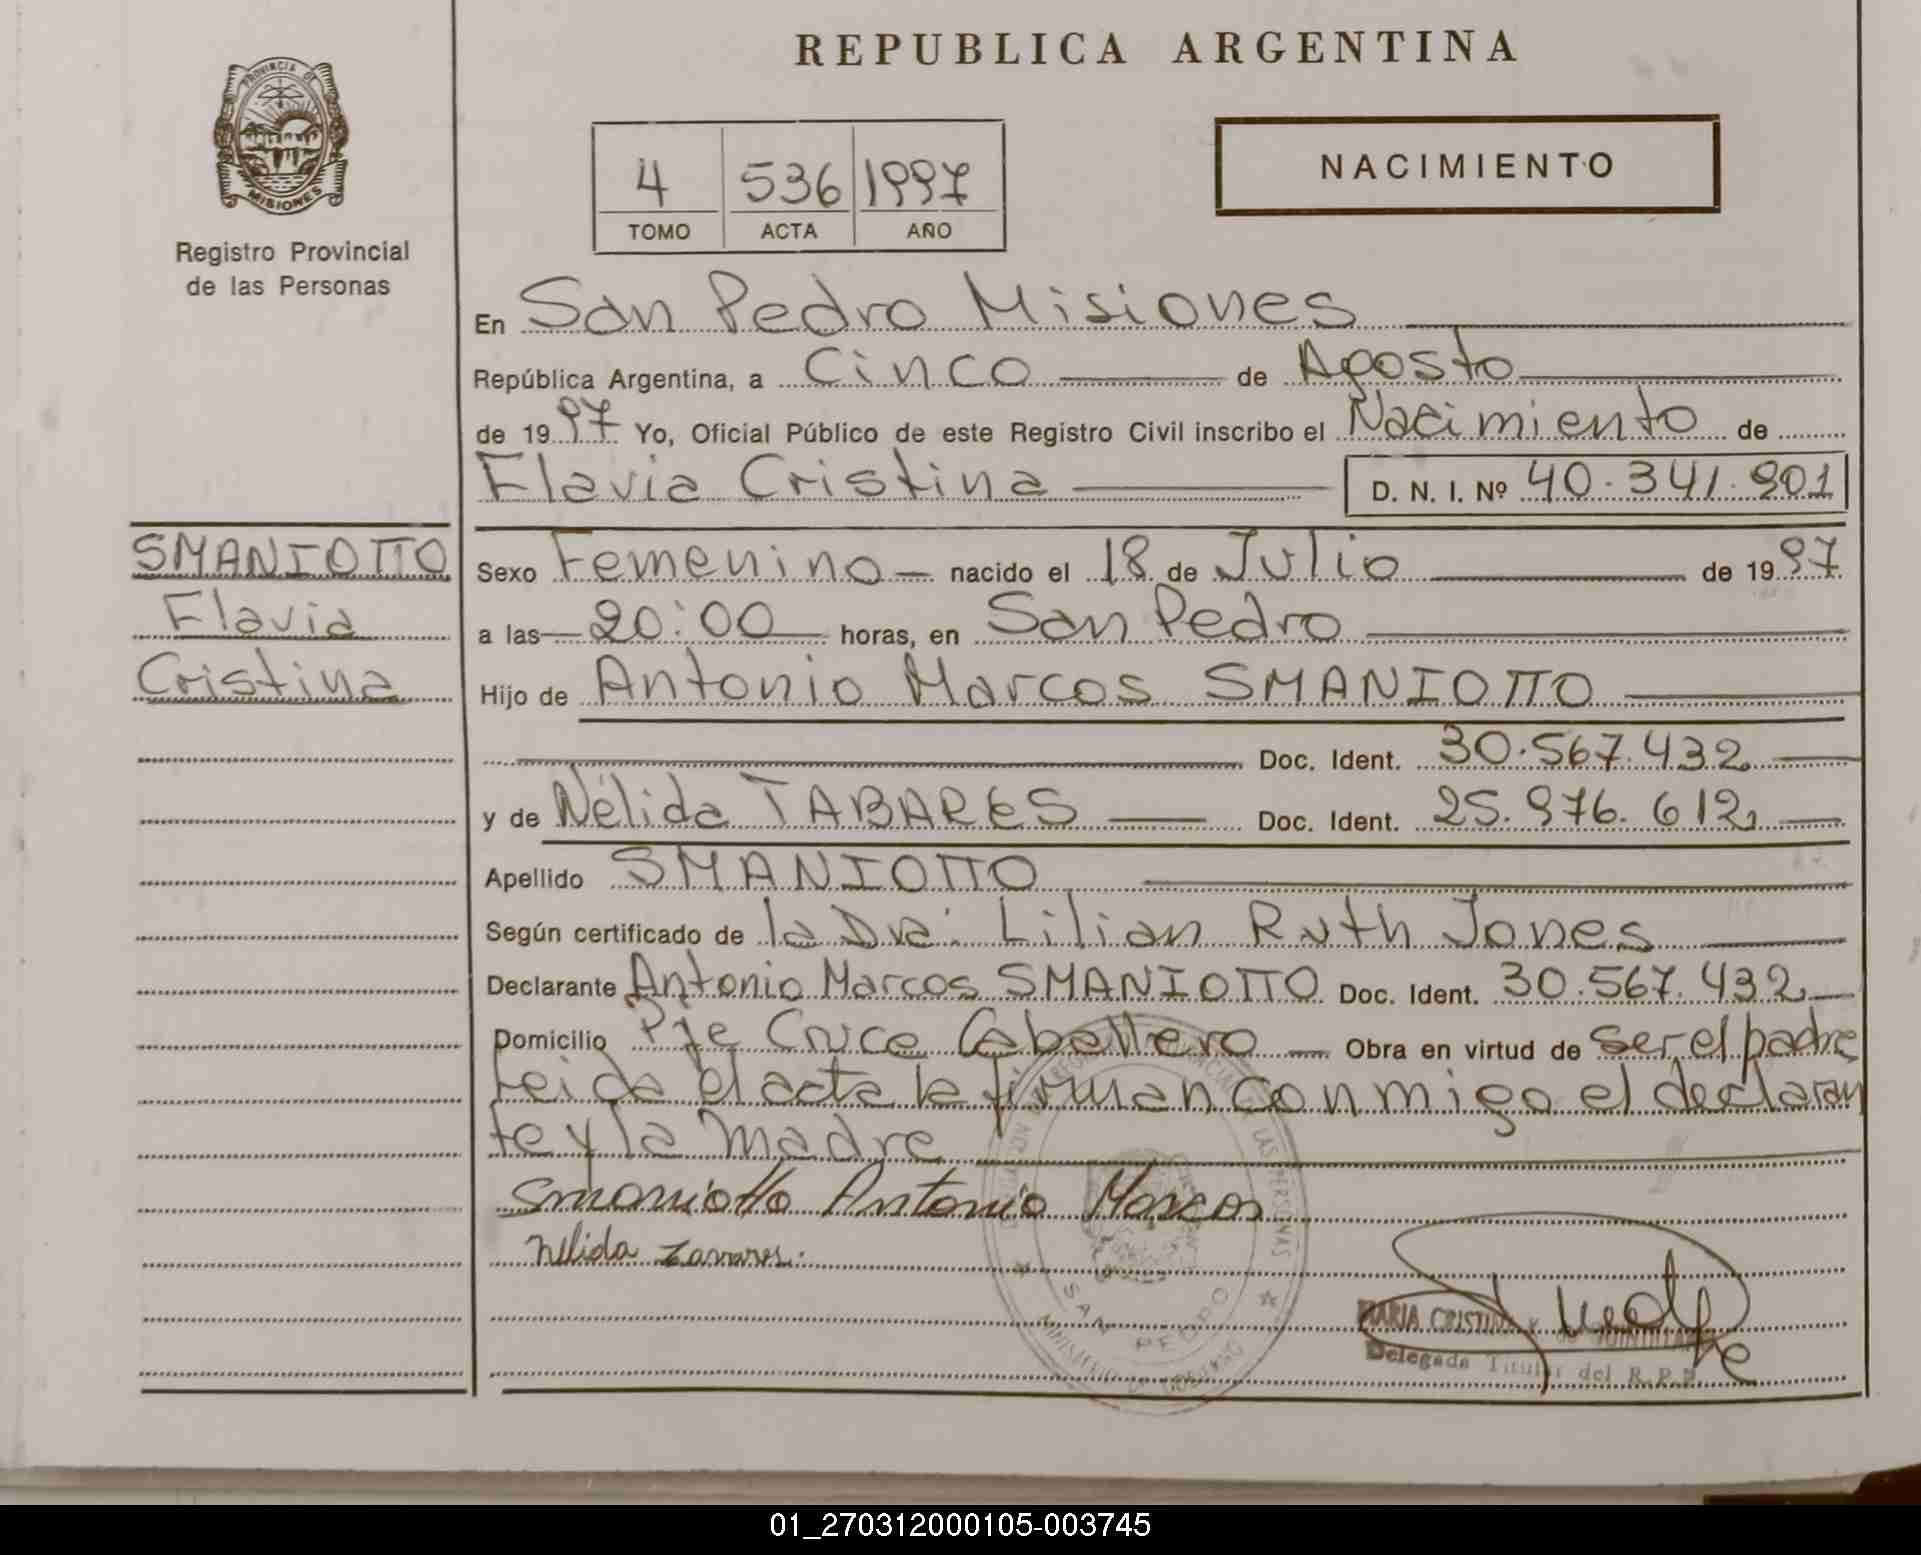 REPUBLICA ARGENTINA
PROVINCIA DE
MISIONES
Registro Provincial
de las Personas
4 536 1997
TOMO ACTA AÑO
NACIMIENTO
En San Pedro Misiones
República Argentina, a Cinco de Agosto
de 1997 Yo, Oficial Público de este Registro Civil inscribo el Nacimiento de
Flavia Cristina D. N. I. Nº 40.341.901
SMANIOTTO
Flavia
Cristina
Sexo Femenino nacido el 18 de Julio de 1997
a las 20:00 horas, en San Pedro
Hijo de Antonio Marcos SMANIOTTO
Doc. Ident. 30.567.432
y de Nélida TABARES Doc. Ident. 25.976.612
Apellido SMANIOTTO
Según certificado de la Dra. Lilian Ruth Jones
Declarante Antonio Marcos SMANIOTTO Doc. Ident. 30.567.432
Domicilio Pje Cruce Caballero Obra en virtud de ser el padre
Leida el acta la firman conmigo el declaran
te y la madre
Smaniotto Antonio Marcos
Nelida
LAS PERSONAS
SAN PEDRO
MINISTERIO DE GOBIERNO
MARIA CRISTINA
Delegada Titular del R.P.P.
01_270312000105-003745